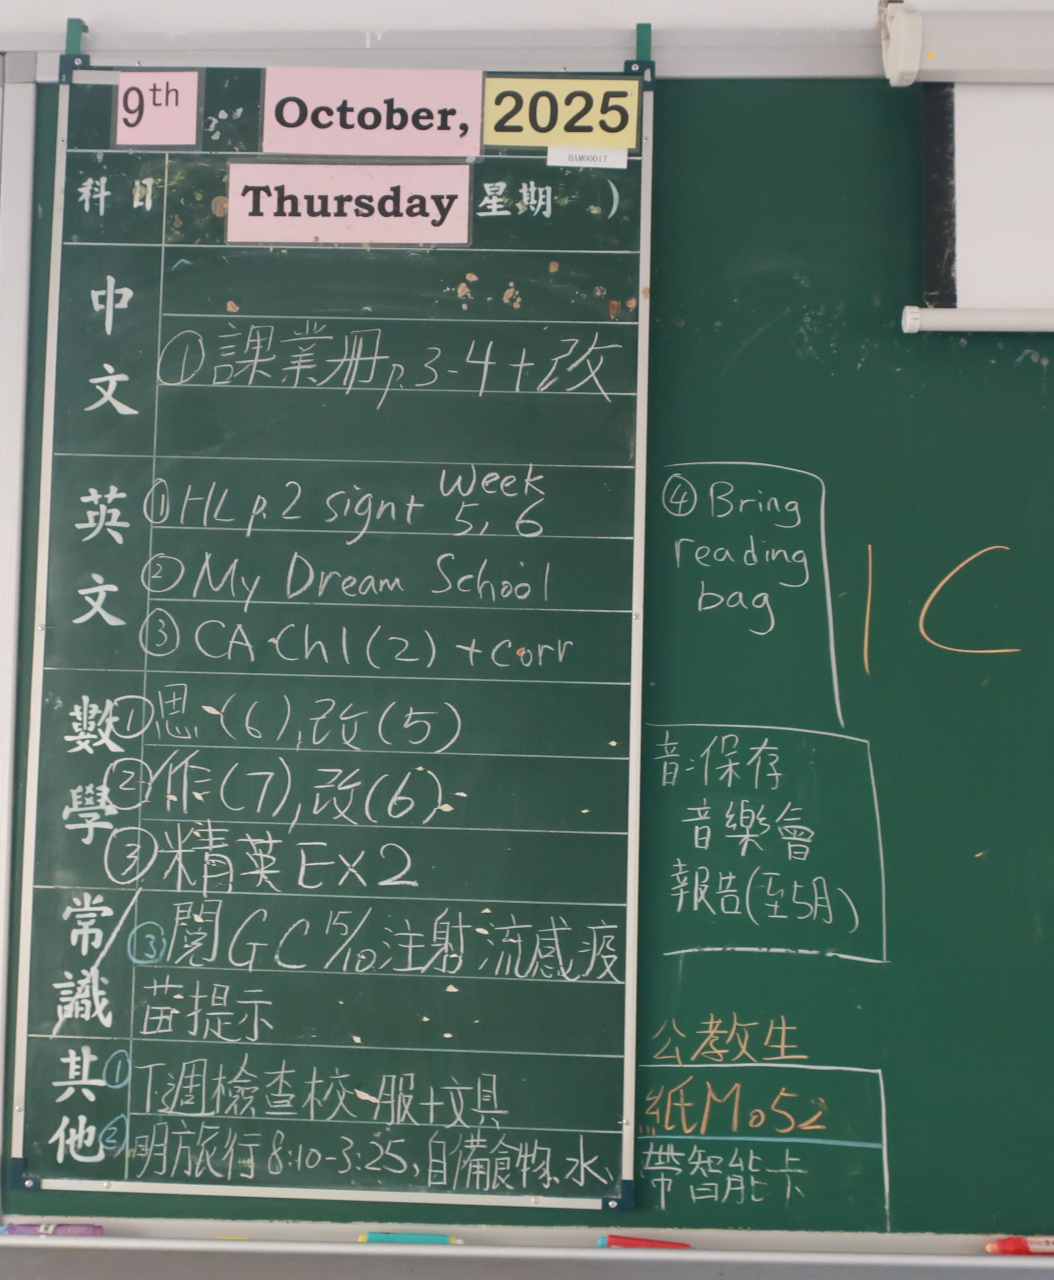 9th October, 2025
HAM00017
科目 Thursday 星期 )
中文
① 課業冊p.3-4+改
英文
① HL p.2 sign+ Week 5, 6
② My Dream School
③ CA Ch1(2) +corr
④ Bring
reading
bag
1C
數學
① 思(6),改(5)
② 作(7),改(6)
③ 精英EX2
音:保存
音樂會
報告(至5月)
常識
③ 閱GC 15/10注射流感疫
苗提示
其他
① 下週檢查校服+文具
② 明旅行8:10-3:25,自備食物、水、
公教生
紙M052
帶智能卡